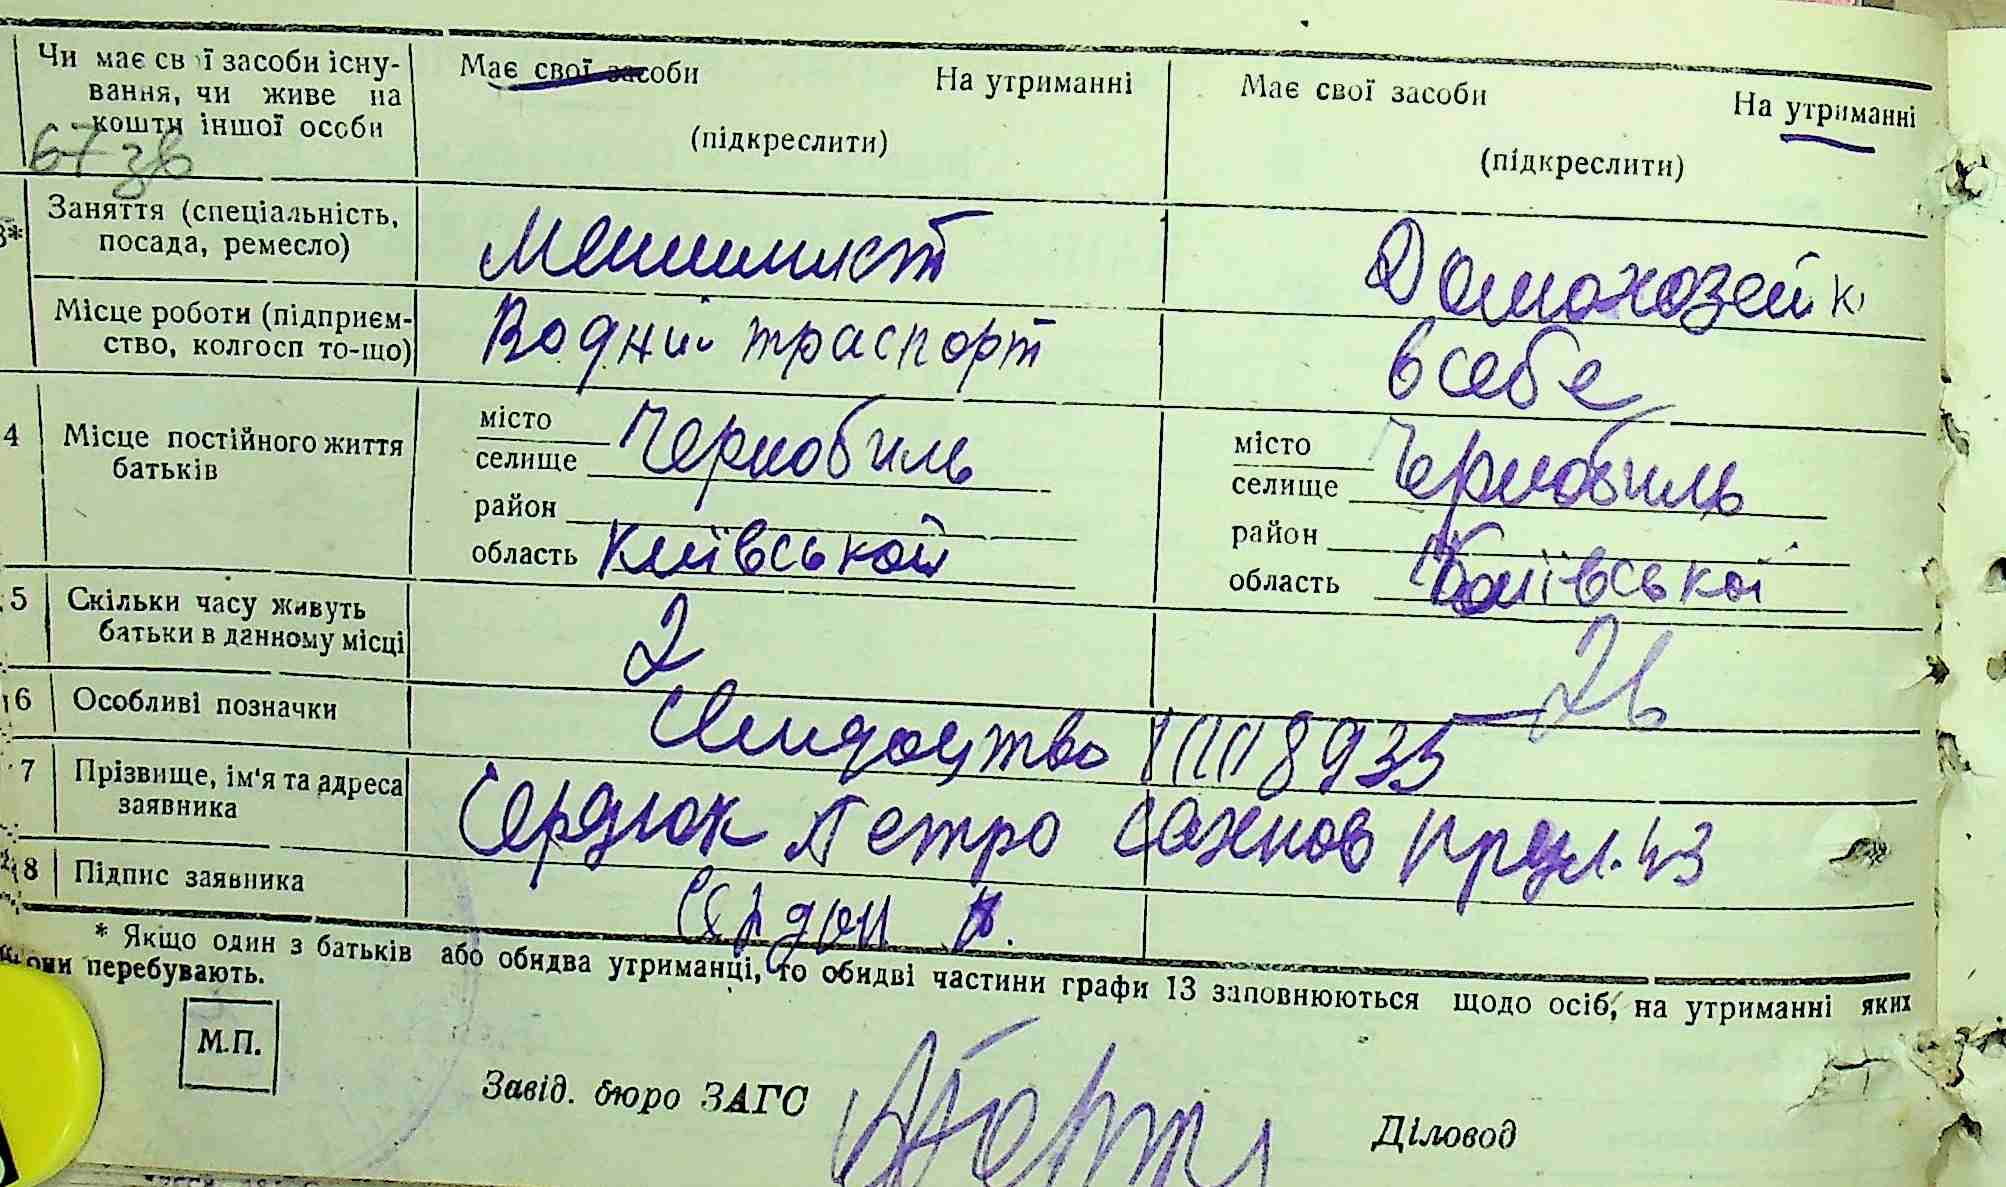 Чи має св ї засоби існу-
вання, чи живе на
кошти іншої особи
67 зв
Має свої засоби На утриманні
(підкреслити)
Має свої засоби На утриманні
(підкреслити)
3*
Заняття (спеціальність,
посада, ремесло)
Домохозейк
Місце роботи (підприєм-
ство, колгосп то-що)
Водний траспорт
в себе
4 Місце постійного життя
батьків
місто
селище Чернобиль
район
область Київської
місто
селище Чернобиль
район
область Київської
5 Скільки часу живуть
батьки в данному місці
2
6 Особливі позначки
Свидоцтво 8935
7 Прізвище, ім'я та адреса
заявника
Сердюк Петро
8 Підпис заявника
* Якщо один з батьків або обидва утриманці, то обидві частини графи 13 заповнюються щодо осіб, на утриманні яких
вони перебувають.
М.П.
Завід. бюро ЗАГС
Діловод